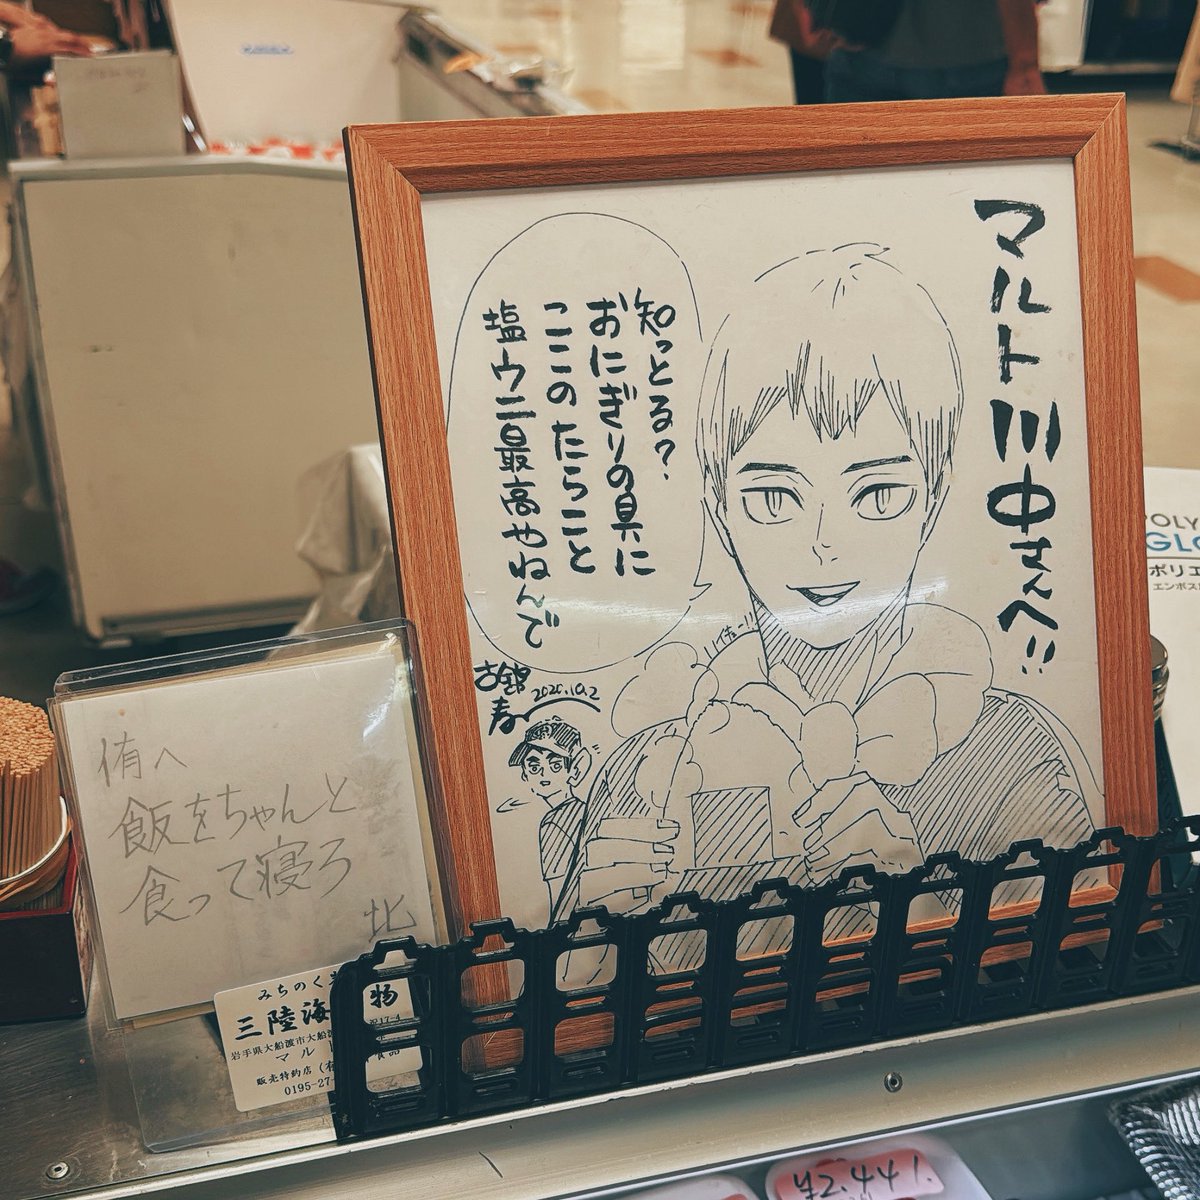 マルト川中さんへ!!
知っとる?
おにぎりの具に
ここのたらこと
塩ウニ最高やねんで
古舘
春一
2020.10.2
侑へ
飯をちゃんと
食って寝ろ
北
みちのく
三陸海
物
岩手県大船渡市大船
マル
食品
販売特約店
0195-27-
ポリエ
エンボス
¥2,441.